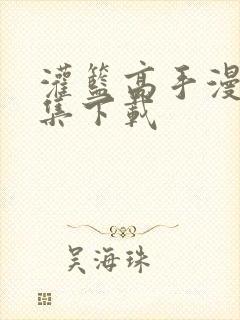 灌籃高手漫
集下載
吴海珠